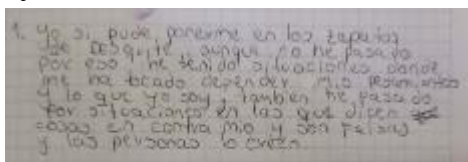 1. Yo si pude ponerme en los zapatos
de DESQUITE, aunque no he pasado
por eso he tenido situaciones donde
me ha tocado defender mis
y lo que yo soy, tambien he pasado
por situaciones en las que dicen
cosas en contra mio y son falsas
y las personas lo creen.